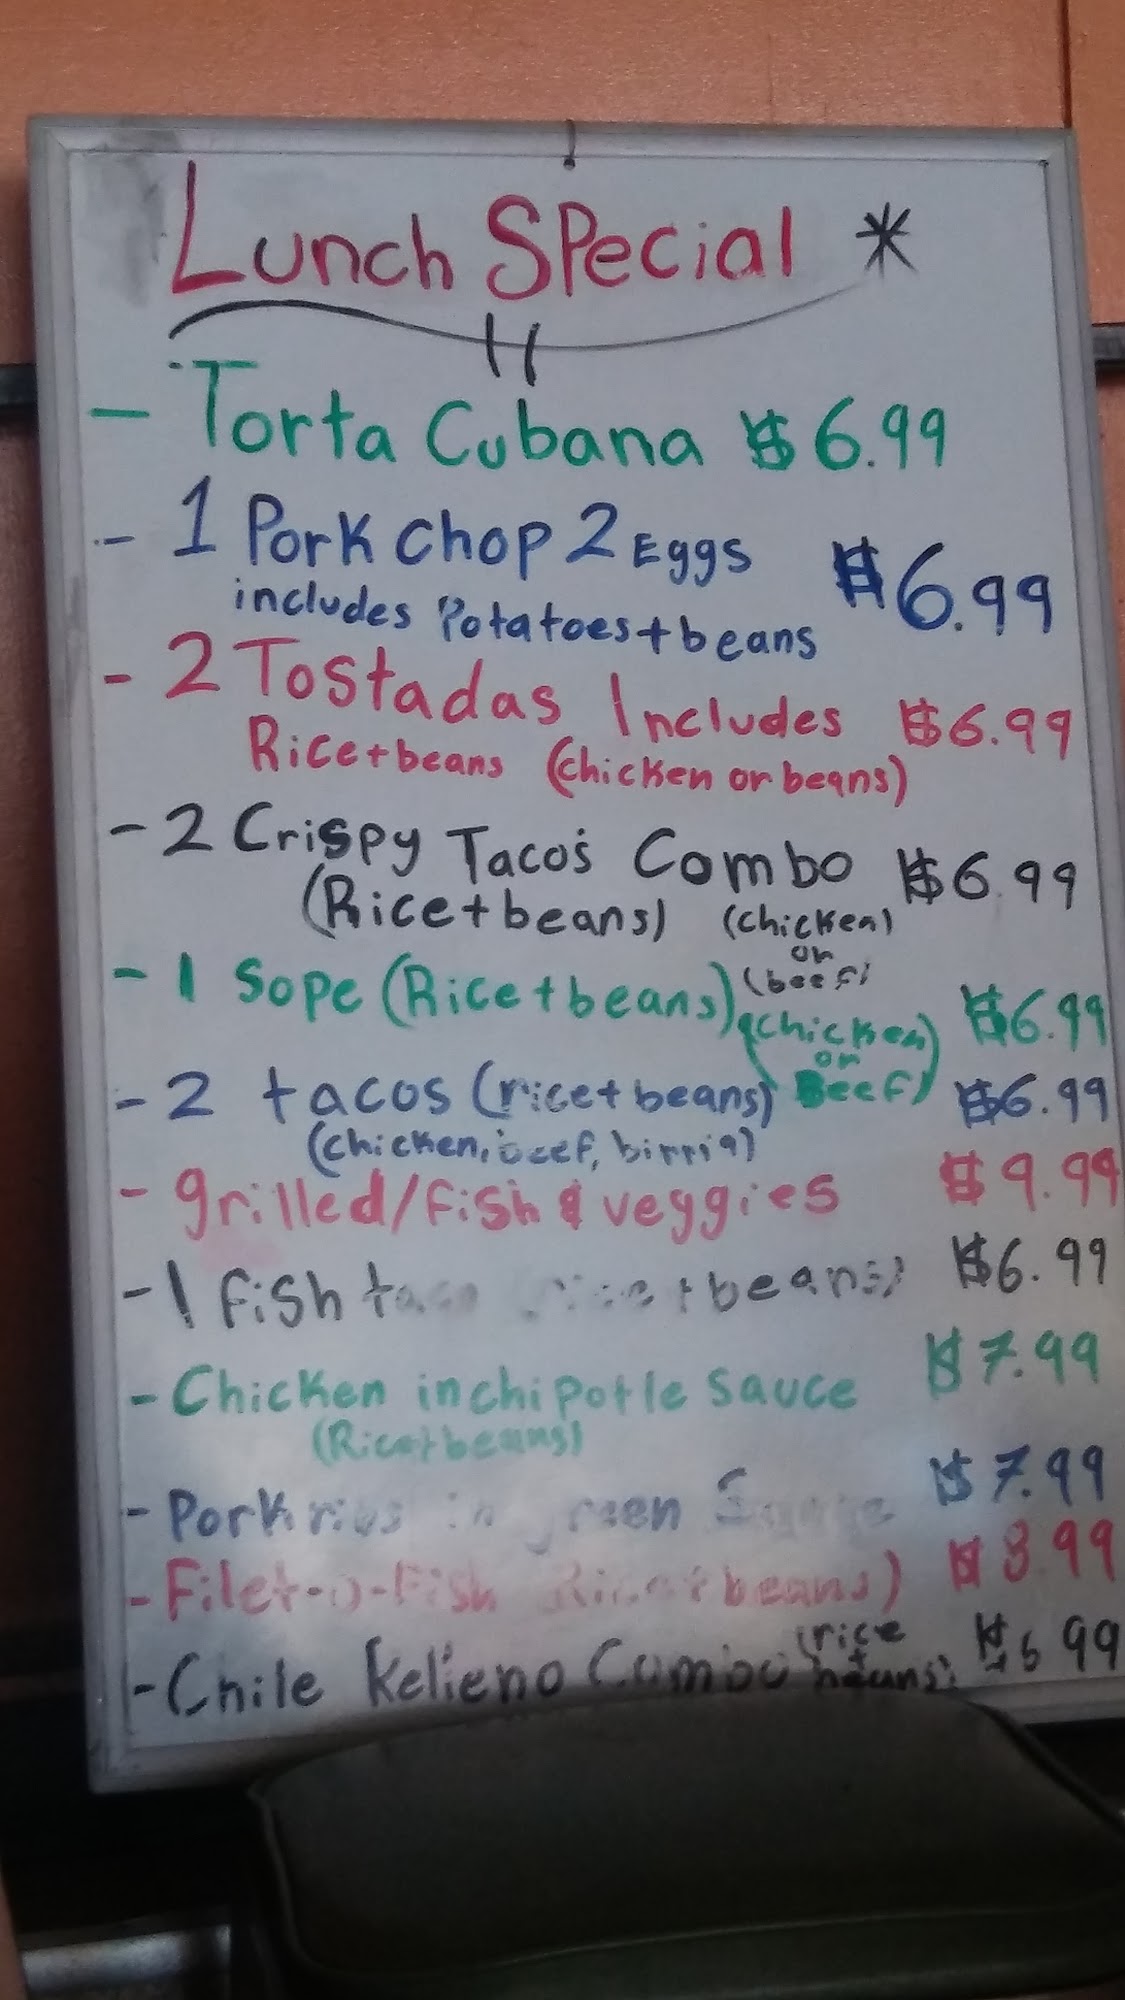 Lunch SPecial *
- Torta Cubana $6.99
- 1 Pork chop 2 Eggs $6.99
includes Potatoes + beans
- 2 Tostadas Includes $6.99
Rice + beans (chicken or beans)
- 2 Crispy Tacos Combo $6.99
(Rice + beans) (chicken)
or
(beef)
- 1 Sope (Rice + beans) $6.99
(chicken
or
Beef)
- 2 tacos (rice + beans) $6.99
(chicken, beef, birria)
- grilled/fish & veggies $9.99
- 1 fish taco (rice + beans) $6.99
- Chicken in chipotle sauce $7.99
(Rice + beans)
- Pork ribs in green Sauce $7.99
- Filet-o-Fish (Rice + beans) $8.99
- Chile Relleno Combo (rice + beans) $6.99